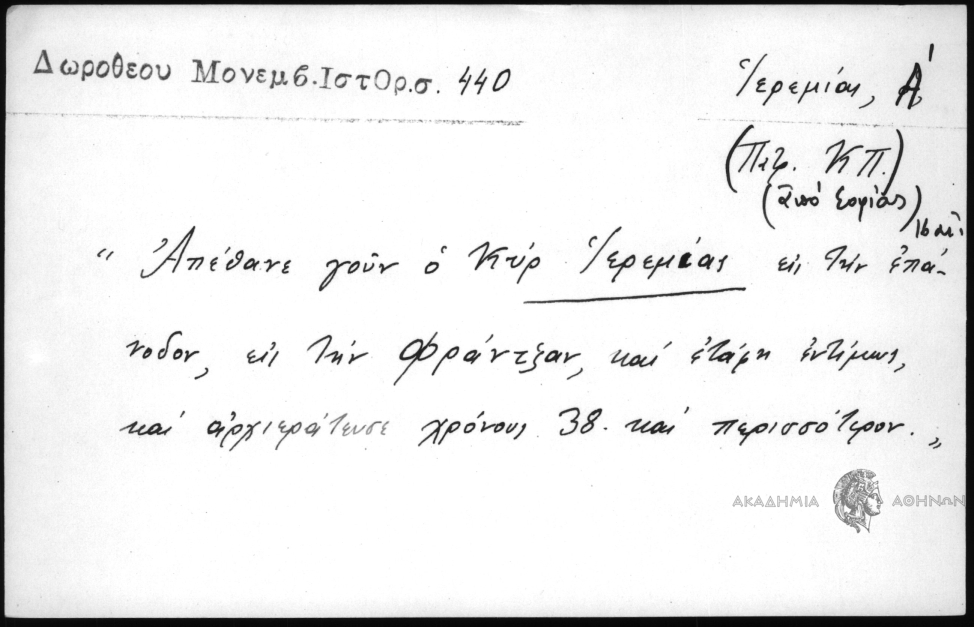 Δωροθεου Μονεμβ.ΙστΟρ.σ. 440
Ἱερεμίας, Α΄
(Πατρ. Κ Π.)
(ἀπό Σοφίας)
16 αἰ.
“ Ἀπέθανε γοῦν ὁ Κύρ Ἱερεμίας εἰς τήν ἐπά-
νοδον, εἰς τήν Φράντζαν, καί ἐτάφη ἐντίμως,
καί ἀρχιεράτευσε χρόνους 38. καί περισσότερον. „
ΑΚΑΔΗΜΙΑ ΑΘΗΝΩΝ